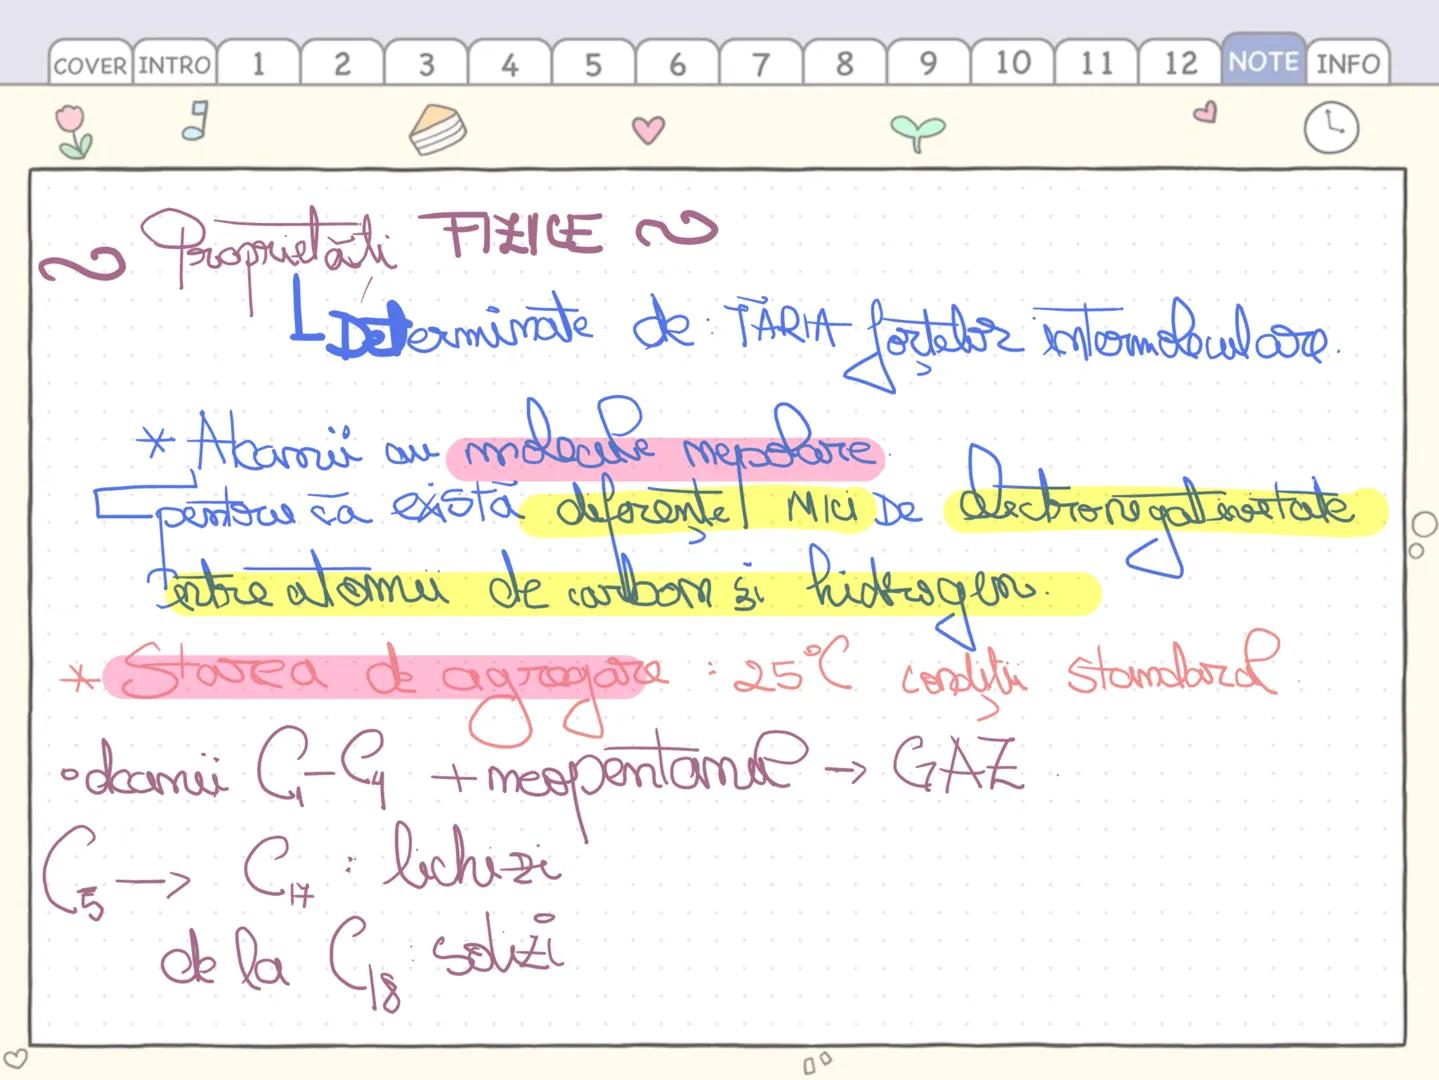 COVER INTRO 1 2 3 4 5 6 7 8 9 10 11 12 NOTE INFO
~ Proprietăți FIZICE ~
Determinate de: TĂRIA forțelor intermoleculare.
* Alcanii au molecule nepolare
pentru că există diferențe MICI DE electronegativitate
între atomii de carbon și hidrogen.
* Starea de agregare : 25°C condiții standard
• alcanii C₁-C₄ + neopentanul → GAZ
C₅ → C₁₇ : lichizi
de la C₁₈ : solizi